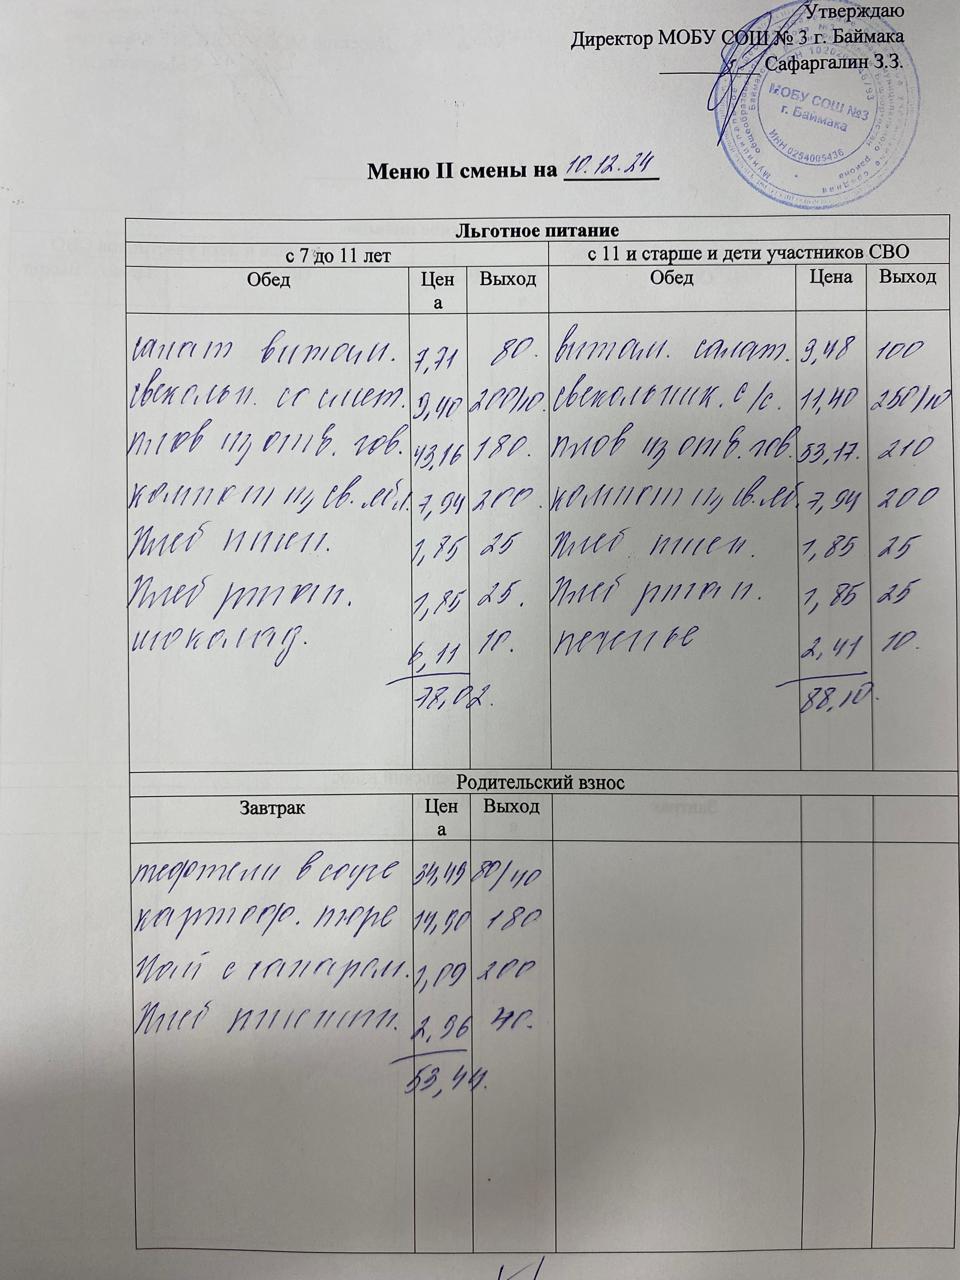 Утверждаю
Директор МОБУ СОШ № 3 г. Баймака
Сафаргалин З.З.
МОБУ СОШ №3
г. Баймака
ИНН 0254005436
Меню II смены на 10.12.24
Льготное питание
с 7 до 11 лет с 11 и старше и дети участников СВО
Обед Цена Выход Обед Цена Выход
салат витам. 7,71 80. витам. салат. 9,48 100
свекольн. со смет. 9,40 200/10. свекольник. с/с. 11,40 250/10
плов из отв. гов. 43,16 180. плов из отв. гов. 53,17. 210
компот из св. ябл. 7,94 200. компот из св. яб. 7,94 200
Хлеб пшен. 1,85 25 Хлеб пшен. 1,85 25
Хлеб ржан. 1,85 25. Хлеб ржан. 1,85 25
шоколад. 6,11 10. печенье 2,41 10.
78,02. 88,10.
Родительский взнос
Завтрак Цена Выход
тефтели в соусе 34,49 80/40
картоф. пюре 14,90 180
Чай с сахаром. 1,09 200
Хлеб пшенич. 2,96 40.
53,44.